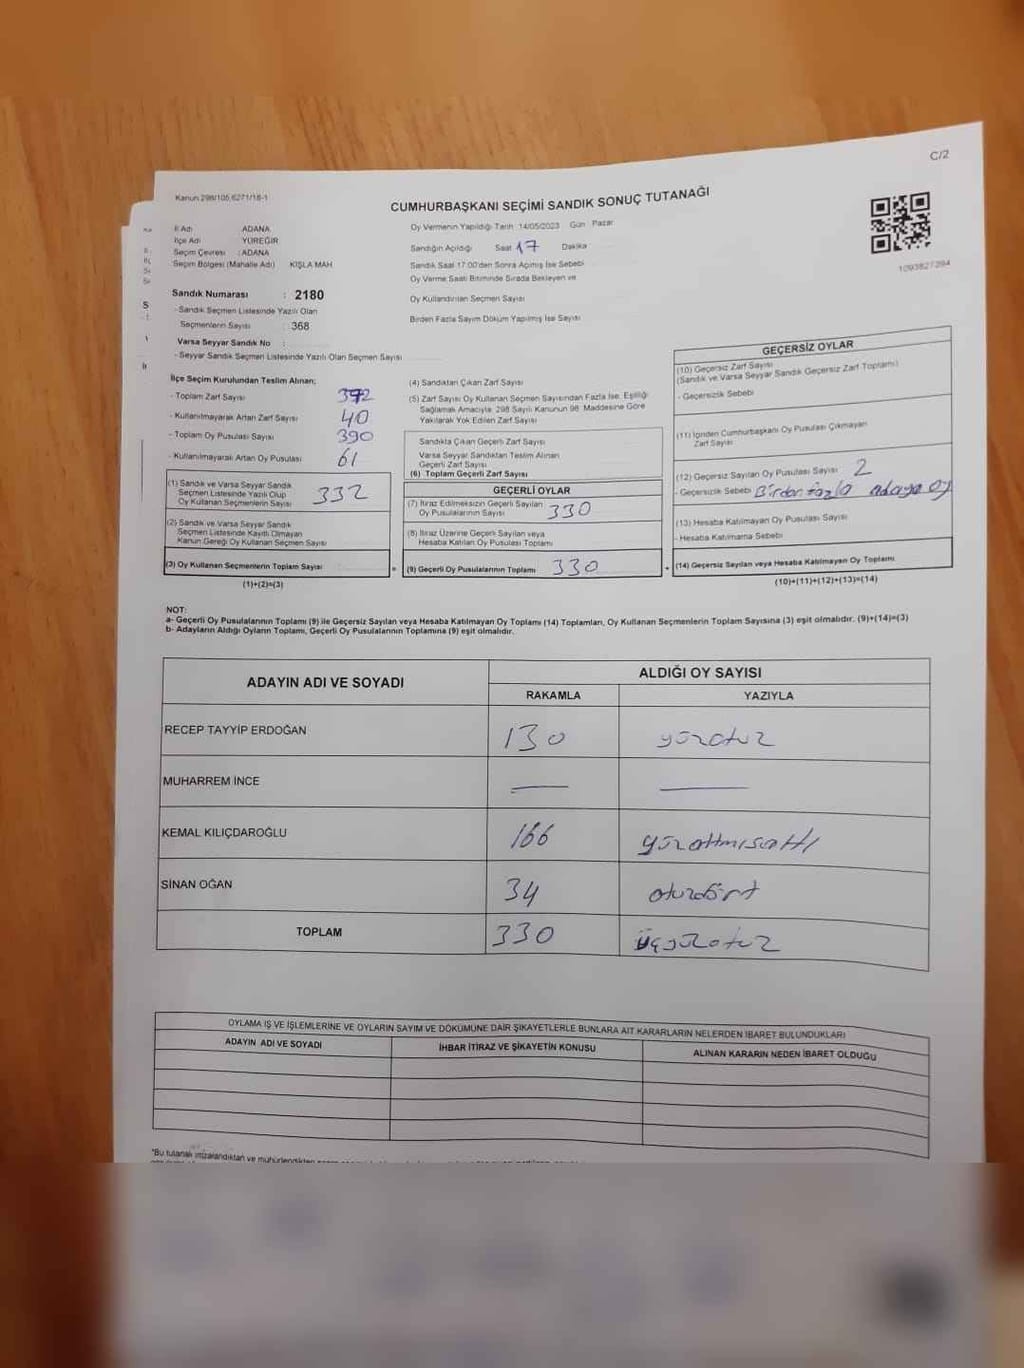 C/2
Kanun 298/105,6271/18-1
CUMHURBAŞKANI SEÇİMİ SANDIK SONUÇ TUTANAĞI
İl Adı ADANA
İlçe Adı YÜREĞİR
Seçim Çevresi : ADANA
Seçim Bölgesi (Mahalle Adı) KIŞLA MAH
Sandık Numarası : 2180
- Sandık Seçmen Listesinde Yazılı Olan
Seçmenlerin Sayısı : 368
Varsa Seyyar Sandık No :
- Seyyar Sandık Seçmen Listesinde Yazılı Olan Seçmen Sayısı
Oy Vermenin Yapıldığı Tarih 14/05/2023 Gün Pazar
Sandığın Açıldığı Saat 17 Dakika
Sandık Saat 17:00'den Sonra Açılmış İse Sebebi
Oy Verme Saati Bitiminde Sırada Bekleyen ve
Oy Kullandırılan Seçmen Sayısı
Birden Fazla Sayım Döküm Yapılmış İse Sayısı
1093827394
İlçe Seçim Kurulundan Teslim Alınan;
- Toplam Zarf Sayısı
- Kullanılmayarak Artan Zarf Sayısı 40
- Toplam Oy Pusulası Sayısı 390
- Kullanılmayarak Artan Oy Pusulası 61
(1) Sandık ve Varsa Seyyar Sandık
Seçmen Listesinde Yazılı Olup
Oy Kullanan Seçmenlerin Sayısı 332
(2) Sandık ve Varsa Seyyar Sandık
Seçmen Listesinde Kayıtlı Olmayan
Kanun Gereği Oy Kullanan Seçmen Sayısı
(3) Oy Kullanan Seçmenlerin Toplam Sayısı
(1)+(2)=(3)
(4) Sandıktan Çıkan Zarf Sayısı
(5) Zarf Sayısı Oy Kullanan Seçmen Sayısından Fazla İse, Eşitliği
Sağlamak Amacıyla, 298 Sayılı Kanunun 98. Maddesine Göre
Yakılarak Yok Edilen Zarf Sayısı
Sandıkta Çıkan Geçerli Zarf Sayısı
Varsa Seyyar Sandıktan Teslim Alınan
Geçerli Zarf Sayısı
(6) Toplam Geçerli Zarf Sayısı
GEÇERLİ OYLAR
(7) İtiraz Edilmeksizin Geçerli Sayılan
Oy Pusulalarının Sayısı 330
(8) İtiraz Üzerine Geçerli Sayılan veya
Hesaba Katılan Oy Pusulası Toplamı
(9) Geçerli Oy Pusulalarının Toplamı 330
GEÇERSİZ OYLAR
(10) Geçersiz Zarf Sayısı
(Sandık ve Varsa Seyyar Sandık Geçersiz Zarf Toplamı)
- Geçersizlik Sebebi
(11) İçinden Cumhurbaşkanı Oy Pusulası Çıkmayan
Zarf Sayısı
(12) Geçersiz Sayılan Oy Pusulası Sayısı 2
- Geçersizlik Sebebi Birden fazla adaya oy
(13) Hesaba Katılmayan Oy Pusulası Sayısı
- Hesaba Katılmama Sebebi
(14) Geçersiz Sayılan veya Hesaba Katılmayan Oy Toplamı
(10)+(11)+(12)+(13)=(14)
NOT:
a- Geçerli Oy Pusulalarının Toplamı (9) ile Geçersiz Sayılan veya Hesaba Katılmayan Oy Toplamı (14) Toplamları, Oy Kullanan Seçmenlerin Toplam Sayısına (3) eşit olmalıdır. (9)+(14)=(3)
b- Adayların Aldığı Oyların Toplamı, Geçerli Oy Pusulalarının Toplamına (9) eşit olmalıdır.
ADAYIN ADI VE SOYADI ALDIĞI OY SAYISI
RAKAMLA YAZIYLA
RECEP TAYYİP ERDOĞAN 130 yüzotuz
MUHARREM İNCE — —
KEMAL KILIÇDAROĞLU 166 yüzaltmışaltı
SİNAN OĞAN 34 otuzdört
TOPLAM 330 üçyüzotuz
OYLAMA İŞ VE İŞLEMLERİNE VE OYLARIN SAYIM VE DÖKÜMÜNE DAİR ŞİKAYETLERLE BUNLARA AİT KARARLARIN NELERDEN İBARET BULUNDUKLARI
ADAYIN ADI VE SOYADI İHBAR İTİRAZ VE ŞİKAYETİN KONUSU ALINAN KARARIN NEDEN İBARET OLDUĞU
"Bu tutanak imzalandıktan ve mühürlendikten